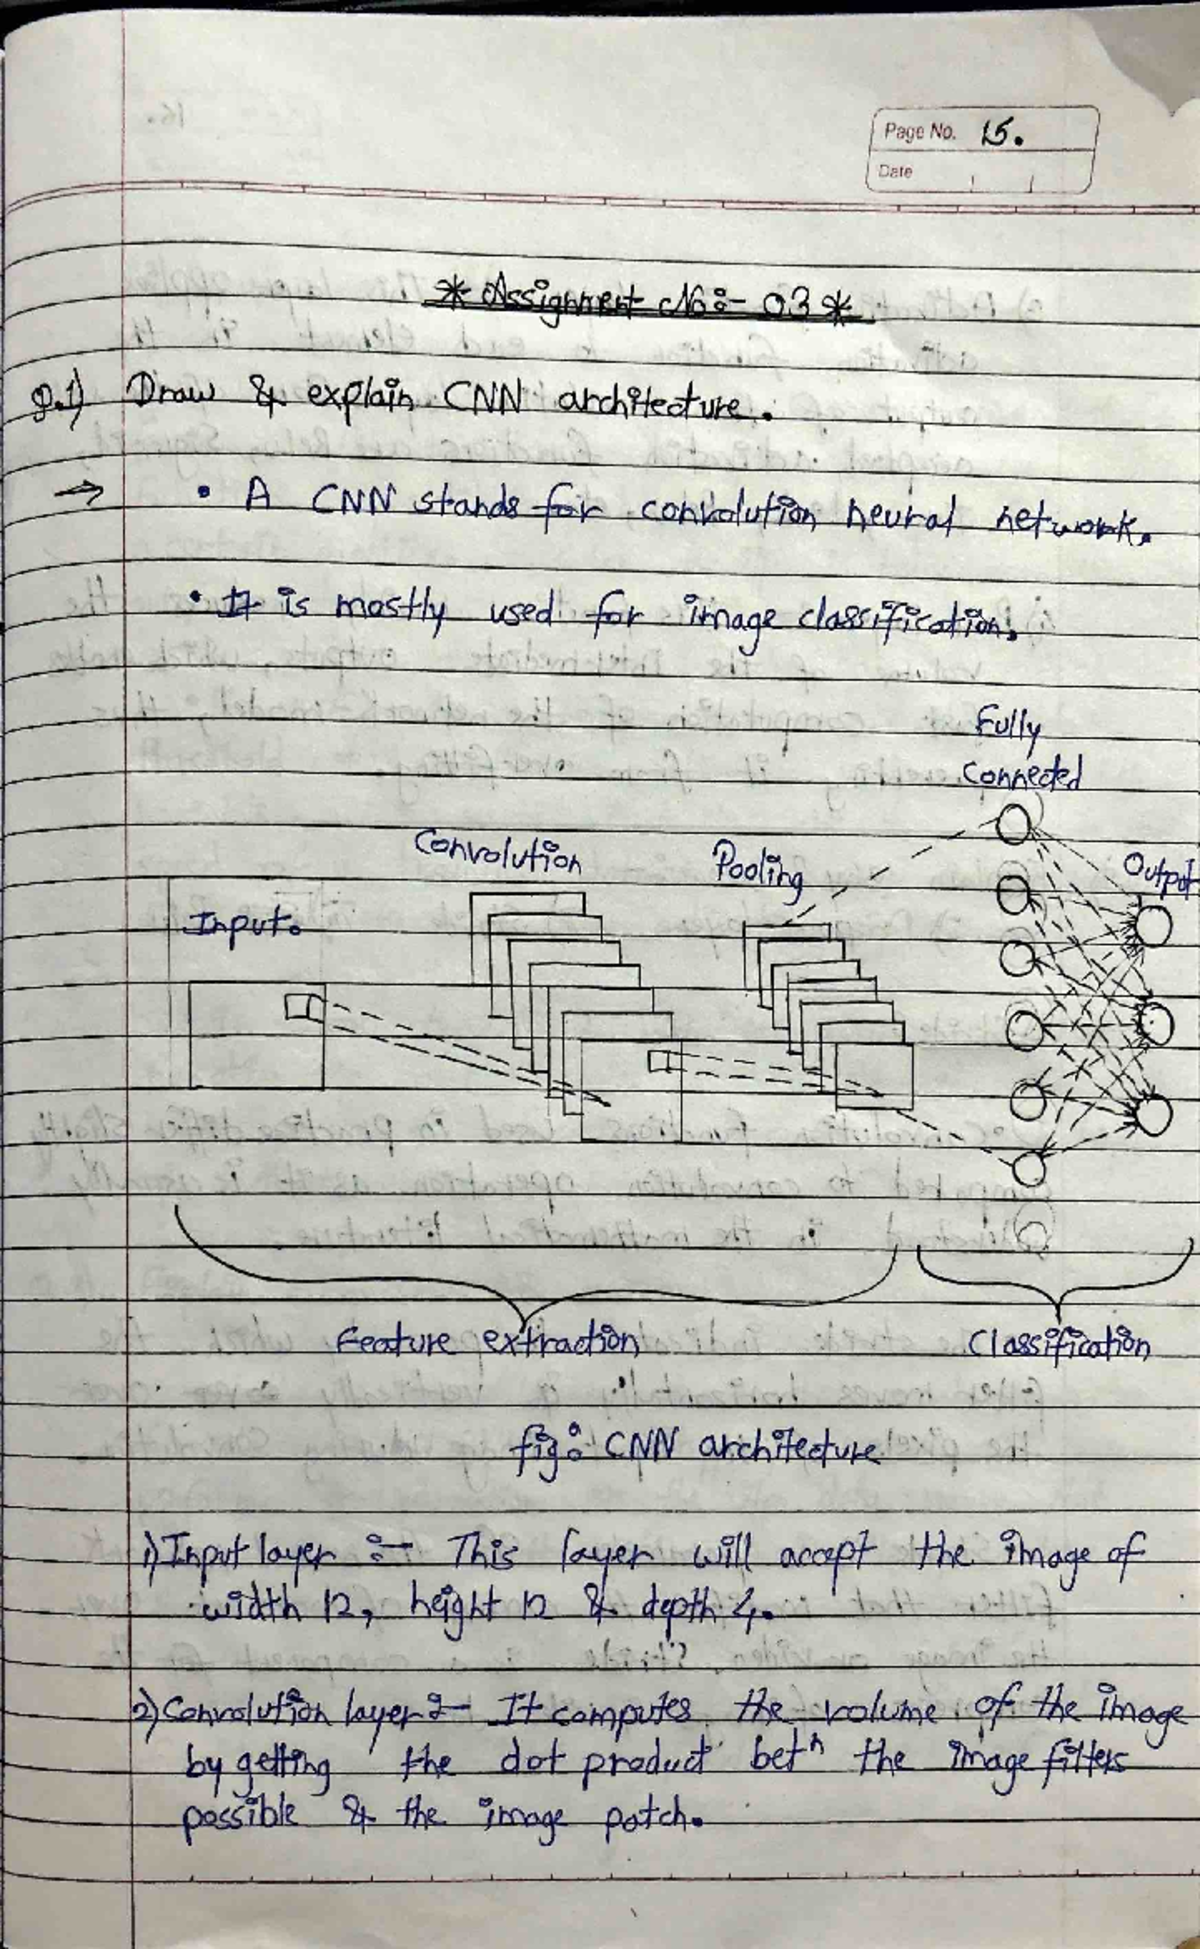 Page No. 15.
Date
* Assignment No:- 03 *
Q.1) Draw & explain CNN architecture.
→ • A CNN stands for convolution neural network.
• It is mostly used for image classification.
Fully
Connected
Convolution
Pooling
Output
Input.
Feature extraction
Classification
fig: CNN architecture
1) Input layer :- This layer will accept the image of
width 12, height 12 & depth 4.
2) Convolution layer :- It computes the volume of the image
by getting the dot product betn the image filters
possible & the image patch.